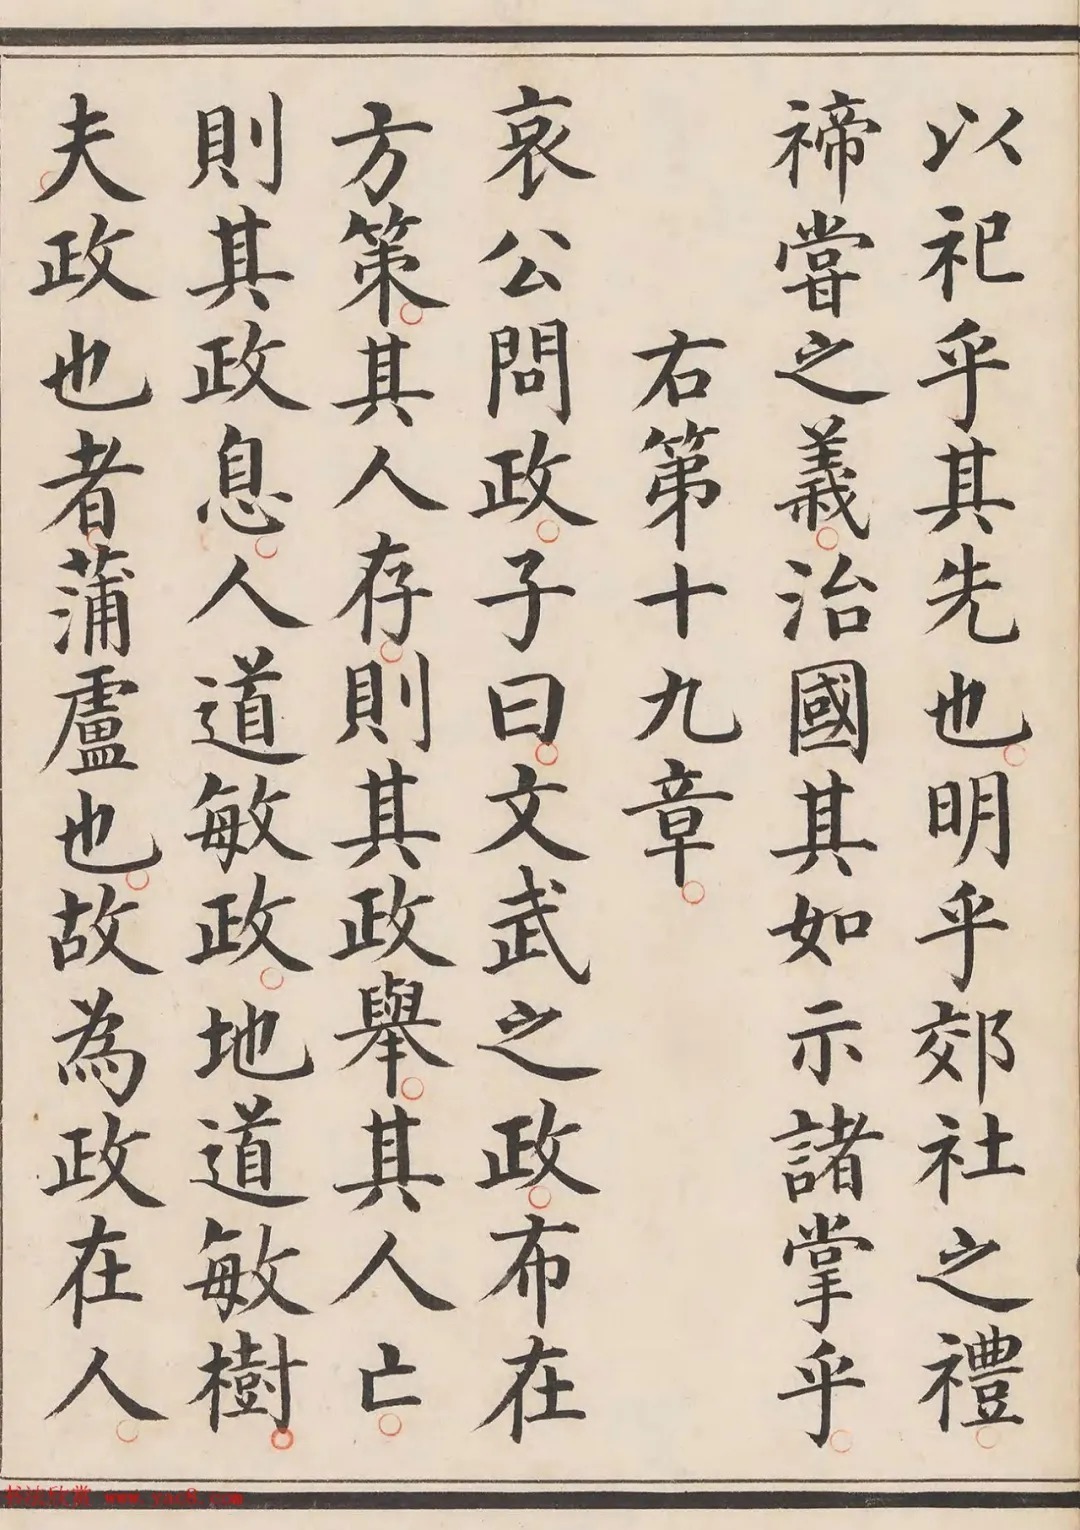 以祀乎其先也明乎郊社之禮
禘嘗之義治國其如示諸掌乎
右第十九章
哀公問政子曰文武之政布在
方策其人存則其政舉其人亡
則其政息人道敏政地道敏樹
夫政也者蒲盧也故為政在人
书法欣赏 www.yac8.com